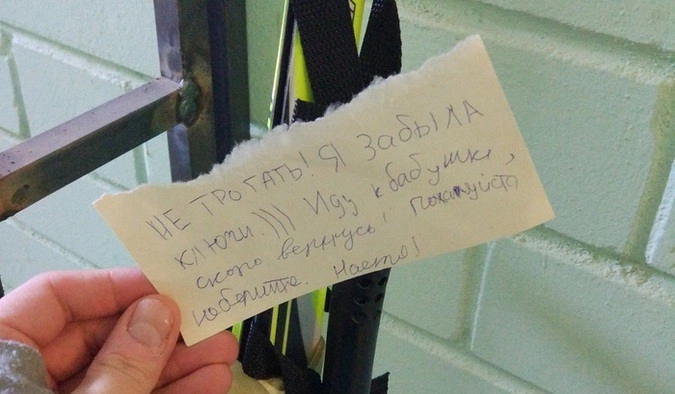 НЕ ТРОГАТЬ! Я ЗАБЫЛА
КЛЮЧИ.))) Иду к бабушке,
скоро вернусь, пожалуйста
не берите. Настя)